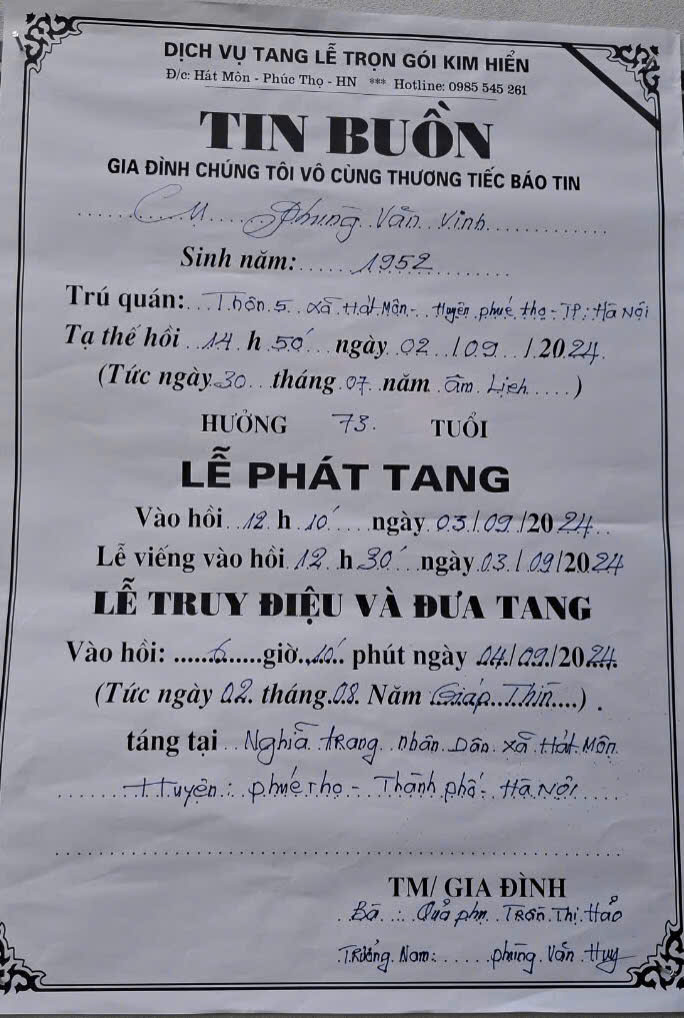 DỊCH VỤ TANG LỄ TRỌN GÓI KIM HIỂN
Đ/c: Hát Môn - Phúc Thọ - HN *** Hotline: 0985 545 261
TIN BUỒN
GIA ĐÌNH CHÚNG TÔI VÔ CÙNG THƯƠNG TIẾC BÁO TIN
Cụ Phùng Văn Vinh
Sinh năm: 1952
Trú quán: Thôn 5 xã Hát Môn - Huyện phúc thọ - TP: Hà Nội
Tạ thế hồi 14 h 50' ngày 02/09/2024
(Tức ngày 30 tháng 07 năm âm Lịch)
HƯỞNG 73 TUỔI
LỄ PHÁT TANG
Vào hồi 12 h 10' ngày 03/09/2024
Lễ viếng vào hồi 12 h 30' ngày 03/09/2024
LỄ TRUY ĐIỆU VÀ ĐƯA TANG
Vào hồi: 6 giờ 10' phút ngày 04/09/2024
(Tức ngày 02 tháng 08 Năm Giáp Thìn)
táng tại Nghĩa trang nhân Dân xã Hát Môn
Huyện: phúc Thọ - Thành phố - Hà Nội
TM/ GIA ĐÌNH
Bà: Quả phụ Trần Thị Hảo
Trưởng Nam: phùng Văn Huy